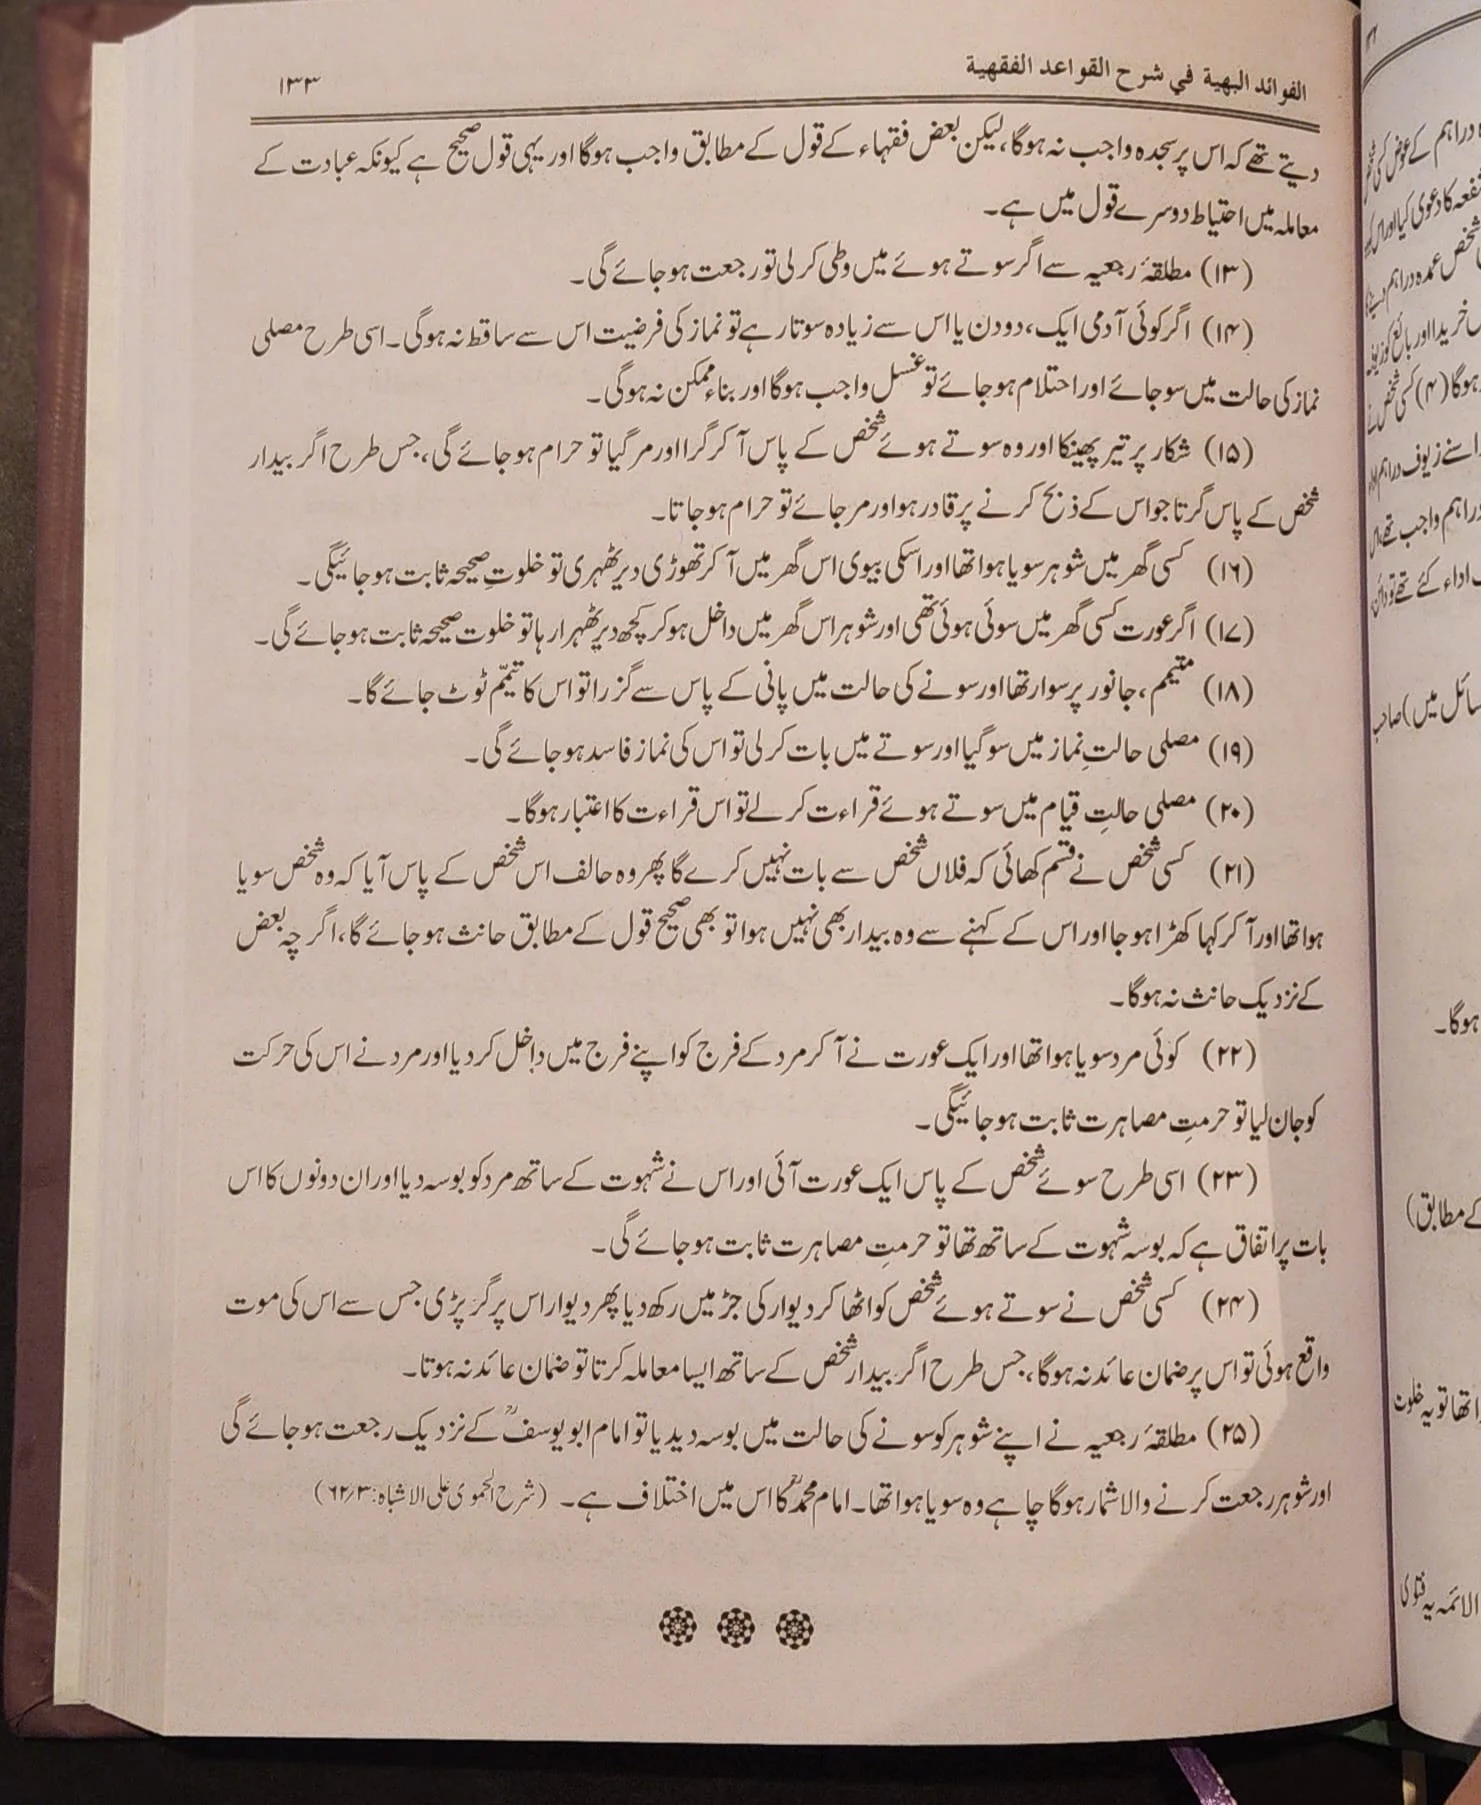 الفوائد البهية في شرح القواعد الفقهية
۱۳۳
دیتے تھے کہ اس پر سجدہ واجب نہ ہوگا، لیکن بعض فقہاء کے قول کے مطابق واجب ہوگا اور یہی قول صحیح ہے کیونکہ عبادت کے
معاملہ میں احتیاط دوسرے قول میں ہے۔
(۱۳) مطلقۂ رجعیہ سے اگر سوتے ہوئے میں وطی کر لی تو رجعت ہو جائے گی۔
(۱۴) اگر کوئی آدمی ایک، دو دن یا اس سے زیادہ سوتا رہے تو نماز کی فرضیت اس سے ساقط نہ ہوگی۔ اسی طرح مصلی
نماز کی حالت میں سو جائے اور احتلام ہو جائے تو غسل واجب ہوگا اور بناء ممکن نہ ہوگی۔
(۱۵) شکار پر تیر پھینکا اور وہ سوتے ہوئے شخص کے پاس آ کر گرا اور مر گیا تو حرام ہو جائے گی، جس طرح اگر بیدار
شخص کے پاس گرتا جو اس کے ذبح کرنے پر قادر ہو اور مر جائے تو حرام ہو جاتا۔
(۱۶) کسی گھر میں شوہر سویا ہوا تھا اور اسکی بیوی اس گھر میں آ کر تھوڑی دیر ٹھہری تو خلوتِ صحیحہ ثابت ہو جائیگی۔
(۱۷) اگر عورت کسی گھر میں سوئی ہوئی تھی اور شوہر اس گھر میں داخل ہو کر کچھ دیر ٹھہرا رہا تو خلوت صحیحہ ثابت ہو جائے گی۔
(۱۸) متیمم، جانور پر سوار تھا اور سونے کی حالت میں پانی کے پاس سے گزرا تو اس کا تیمّم ٹوٹ جائے گا۔
(۱۹) مصلی حالتِ نماز میں سو گیا اور سوتے میں بات کر لی تو اس کی نماز فاسد ہو جائے گی۔
(۲۰) مصلی حالتِ قیام میں سوتے ہوئے قراءت کر لے تو اس قراءت کا اعتبار ہوگا۔
(۲۱) کسی شخص نے قسم کھائی کہ فلاں شخص سے بات نہیں کرے گا پھر وہ حالف اس شخص کے پاس آیا کہ وہ شخص سویا
ہوا تھا اور آ کر کہا کھڑا ہو جا اور اس کے کہنے سے وہ بیدار بھی نہیں ہوا تو بھی صحیح قول کے مطابق حانث ہو جائے گا، اگر چہ بعض
کے نزدیک حانث نہ ہوگا۔
(۲۲) کوئی مرد سویا ہوا تھا اور ایک عورت نے آ کر مرد کے فرج کو اپنے فرج میں داخل کر دیا اور مرد نے اس کی حرکت
کو جان لیا تو حرمتِ مصاہرت ثابت ہو جائیگی۔
(۲۳) اسی طرح سوئے شخص کے پاس ایک عورت آئی اور اس نے شہوت کے ساتھ مرد کو بوسہ دیا اور ان دونوں کا اس
بات پر اتفاق ہے کہ بوسہ شہوت کے ساتھ تھا تو حرمتِ مصاہرت ثابت ہو جائے گی۔
(۲۴) کسی شخص نے سوتے ہوئے شخص کو اٹھا کر دیوار کی جڑ میں رکھ دیا پھر دیوار اس پر گر پڑی جس سے اس کی موت
واقع ہوئی تو اس پر ضمان عائد نہ ہوگا، جس طرح اگر بیدار شخص کے ساتھ ایسا معاملہ کرتا تو ضمان عائد نہ ہوتا۔
(۲۵) مطلقۂ رجعیہ نے اپنے شوہر کو سونے کی حالت میں بوسہ دیدیا تو امام ابو یوسفؒ کے نزدیک رجعت ہو جائے گی
اور شوہر رجعت کرنے والا شمار ہوگا چاہے وہ سویا ہوا تھا۔ امام محمدؒ کا اس میں اختلاف ہے۔ (شرح الحموی علی الاشباہ: ۶۲/۳)
دراہم کے عوض کسی
شفعہ کا دعوی کیا اور
شخص عمدہ دراہم
خریدا اور بائع کو
ہوگا (۴) کسی شخص نے
اسنے زیوف دراہم
دراہم واجب تھے
اداء کئے تھے تو
سائل میں) صاحب
ہوگا۔
کے مطابق)
تھا تو یہ خلوت
الائمہ یہ فتوی